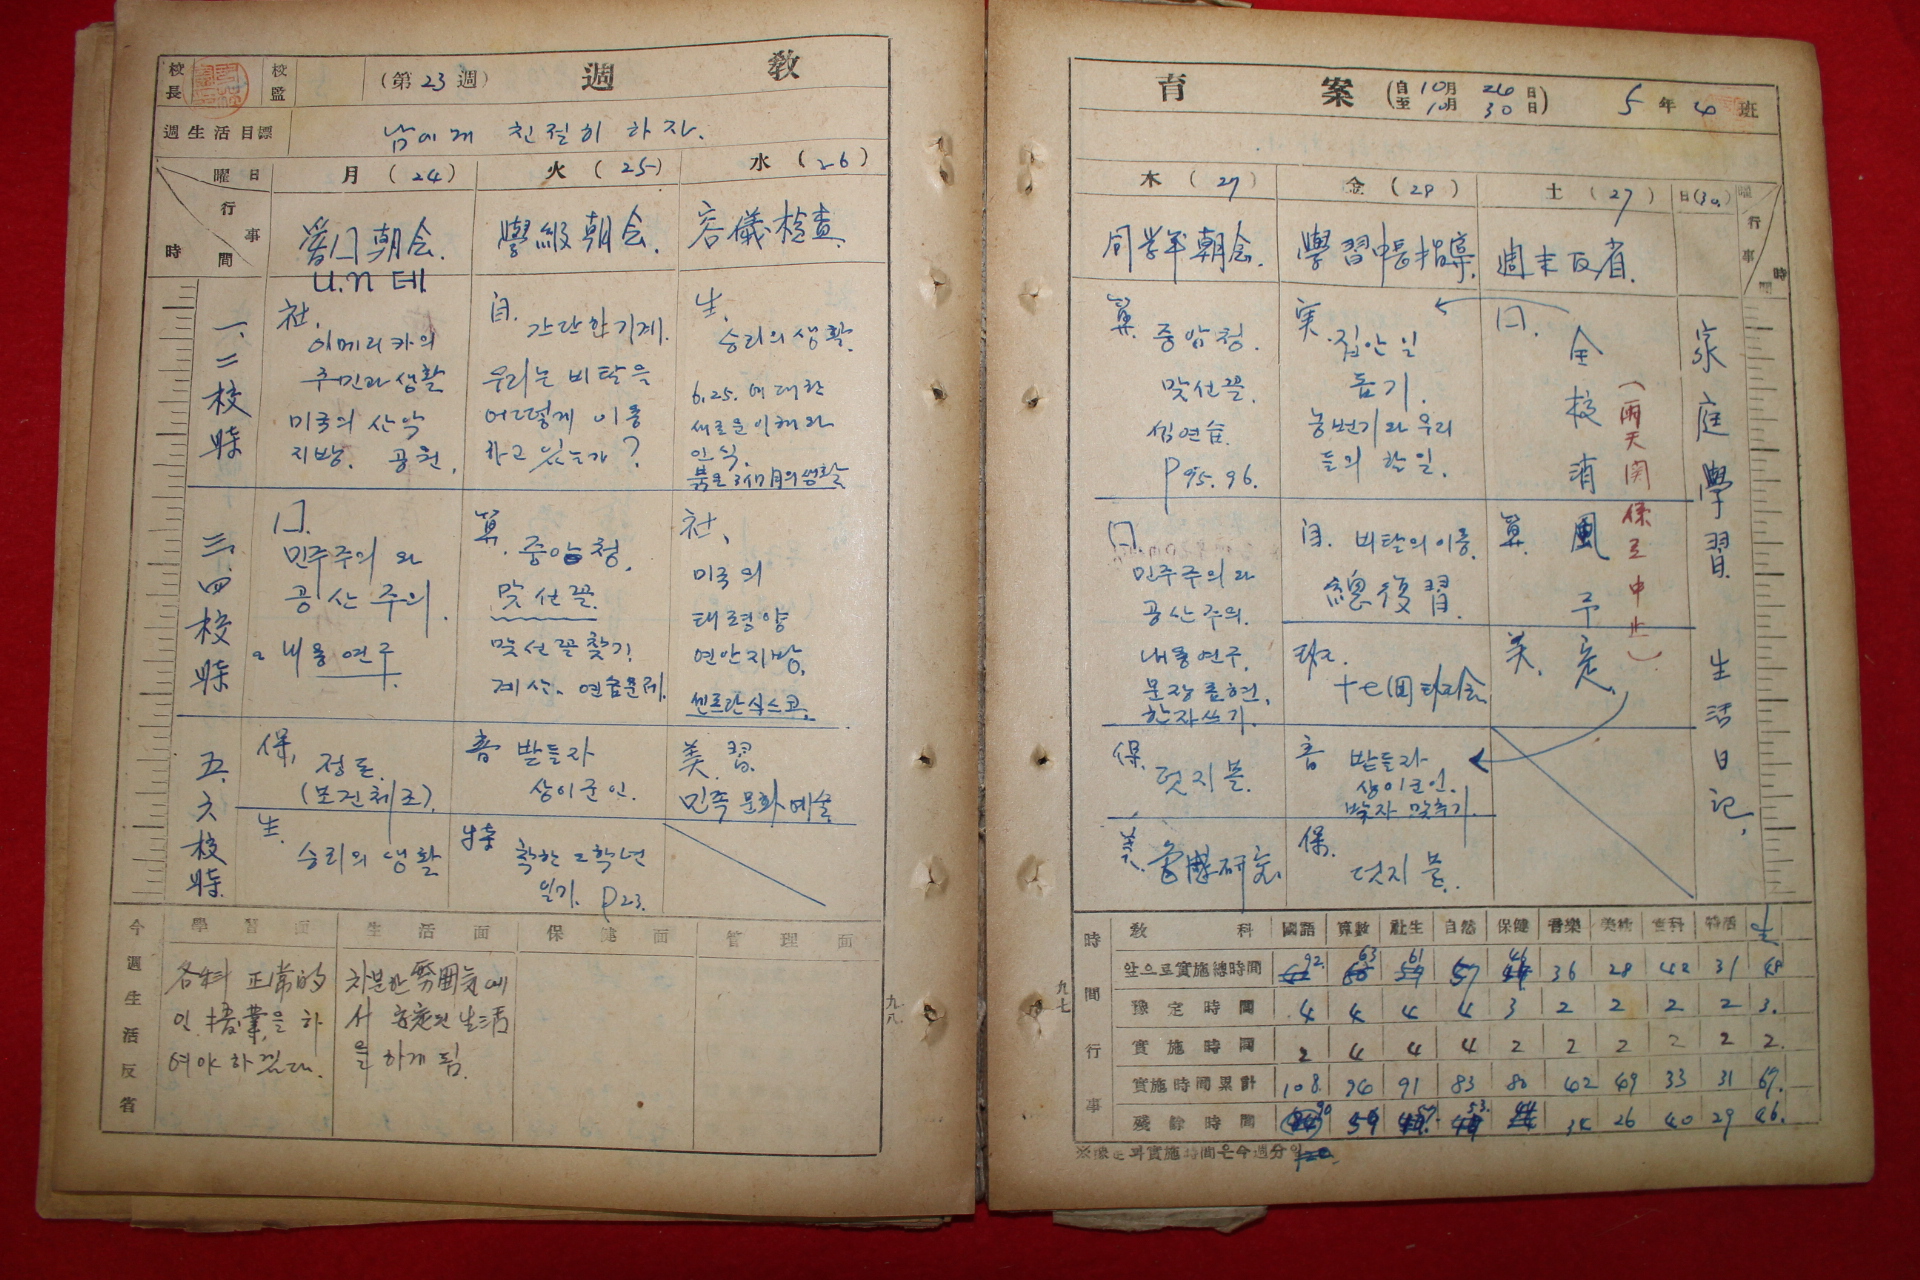 校長 校監 (第23週) 週 敎
週生活目標 남에게 친절히 하자.
曜日 月 (24) 火 (25) 水 (26)
行事
時間
朝会. 學級朝会. 容儀検査
U.N 데
一.二校時
社.
아메리카의
주민과 생활
미국의 산악
지방. 공원.
自. 간단한 기계.
우리는 비탈을
어떻게 이용
하고 있는가?
生.
승리의 생활.
6.25. 에 대한
새로운 이해와
인식.
붉은 3개月의 생활
三.四校時
민주주의 와
공산주의.
내용연구
算. 중앙청.
맞선꼴.
맞선꼴찾기.
계산. 연습문제.
社.
미국의
태평양
연안지방.
센프란식스코.
五.六校時
保. 정돈.
(보건체조).
音 받들자
상이군인.
美. 習.
민족 문화 예술
生.
승리의 생활
特
착한 2학년
일기. P23.
今週生活反省
學習面 生活面 保健面 管理面
各科 正常的
인 授業을 하
여야 하겠다.
차분한 雰囲気에
서 安定된 生活
을 하게 됨.
九八
育 案 (自10月24日 至10月30日) 5年4班
木 (27) 金 (28) 土 (29) 日(30)
曜 行事 時間
同学年朝会. 學習帳指導. 週末反省.
算. 중앙청.
맞선꼴.
P 95. 96.
実. 집안일
돕기.
농번기와 우리
들의 할일.
全校消風予定
(雨天関係로 中止)
家庭學習 生活日記.
민주주의와
공산주의.
내용연구.
문장표현.
한자쓰기.
自. 비탈의 이용.
總復習.
算.
美.
保. 던지볼.
音 받들자
상이군인.
박자 맞추기.
美.
保.
던지볼.
九七
時間行事
敎科 國語 算數 社生 自然 保健 音樂 美術 實科 特活
앞으로實施總時間 92. 63 61 57 46 36 28 42 31 48
豫定時間 4 4 4 4 3 2 2 2 2 3.
實施時間 2 4 4 4 2 2 2 2 2 2.
實施時間累計 108. 96 91 83 80 62 49 33 31 67.
殘餘時間 90 59 57. 53. 44 34 26 40 29 46.
※豫定과實施時間은今週分임